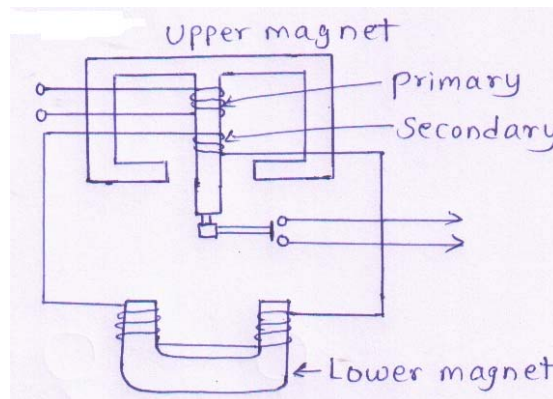 Upper magnet
Primary
Secondary
Lower magnet